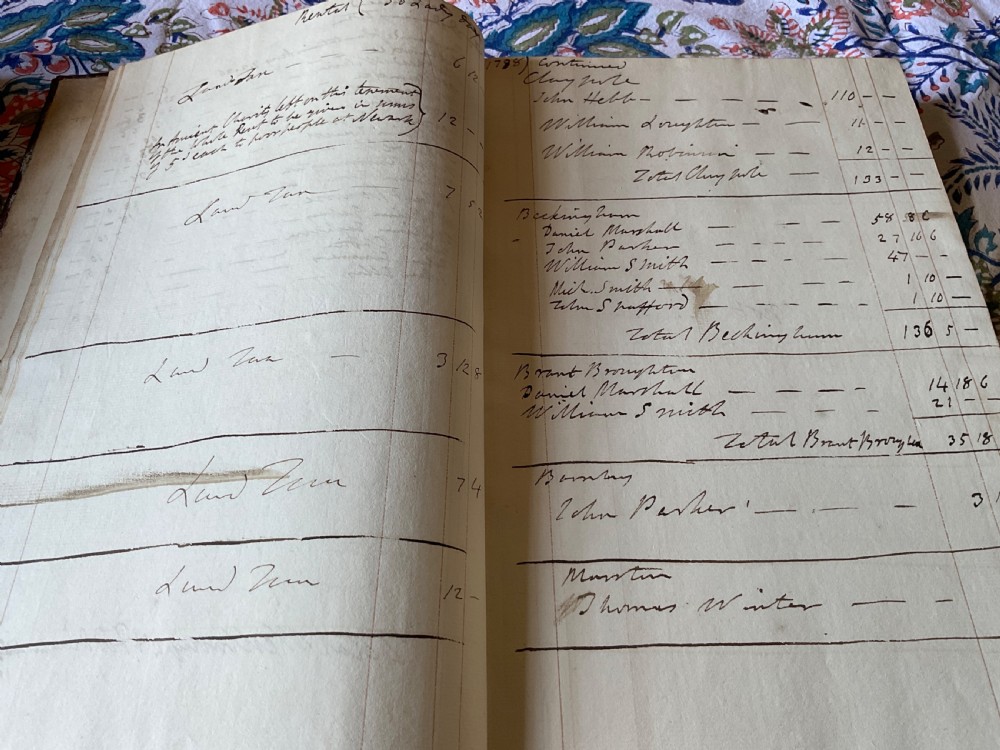 Rental ( To Lady
Land Tax — — 6 12
An Ancient Charity left on this tenement
of the whole Rent to be given in sums
of 5 s each to poor people at Newark } 12 -
Land Tax 7 5
Land Tax — 3 12 8
Land Tax 7 4
Land Tax 12 -
1788) Continued
Claypole
John Hebb — — — — 110 — —
William Loughton — — 11 — —
William Robinson — — — 12 — —
Total Claypole — — 133 — —
Beckingham
Daniel Marshall — — 58 8 6
John Parker — — - — 27 16 6
William Smith — - - — 47 - —
Mich. Smith — — — — 1 10 —
John Stafford — — - - - — 1 10 —
Total Beckingham 136 5 —
Brant Broughton
Daniel Marshall — — — — 14 18 6
William Smith — — — - 21 — —
Total Brant Broughton 35 18
Barnby
John Parker — — — — 3
Marston
Thomas Winter — — —